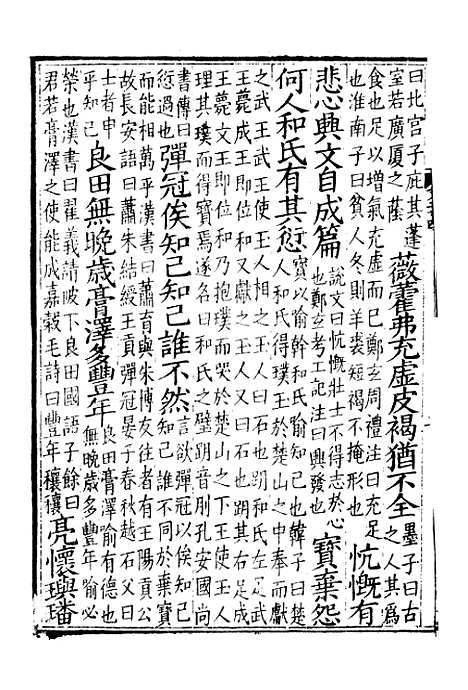 曰北宮子庇其蓬
室若廣厦之蔭
薇藿弗充虚皮褐猶不全
墨子曰古
之人其為
食也足以増氣充虚而已鄭玄周禮注曰充足
也淮南子曰貧人冬則羊裘短褐不掩形也
忼慨有
悲心興文自成篇
說文曰忼慨壯士不得志於心
也鄭玄考工記注曰興發也
寳棄怨
何人和氏有其愆
寳以喻幹和氏喻知己也韓子曰楚
人和氏得璞玉於楚山之中奉而獻
之武王武王使玉人相之玉人曰石也刖和氏左足武
王薨成王即位和又獻之玉人又曰石也刖其右足成
王薨文王即位和乃抱璞而哭於楚山之下王使玉人
理其璞而得寳焉遂名曰和氏之璧刖音刖孔安國尚
書傳曰
愆過也
彈冠俟知己知己誰不然
言欲彈冠以俟知己
知己誰不同於棄寳
而能相萬乎漢書曰蕭育與朱博友往者有王陽貢公
故長安語曰蕭朱結綬王貢彈冠晏子春秋越石父曰
士者申
乎知己
良田無晚歳膏澤多豐年
良田膏澤喻有德也
無晚歳多豐年喻必
榮也漢書曰翟義請陂下良田國語子餘曰
君若膏澤之使能成嘉榖毛詩曰豐年穰穰
亮懷璵璠